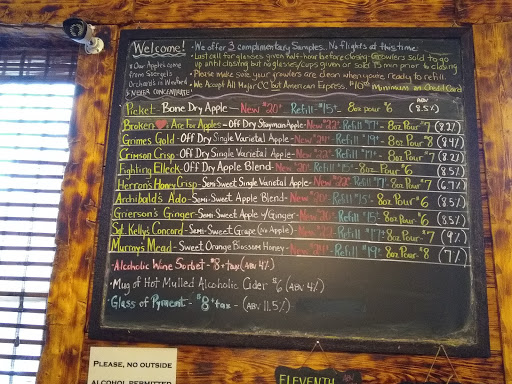 Welcome! • We offer 3 complimentary Samples. No flights at this time.
• Our Apples come from
Orchards in
NEVER CONCENTRATE!
• Last call for glasses given half-hour before closing. Growlers sold to go
up until closing but no glasses/cups given or sold 15 min prior to closing
• Please make sure your growlers are clean when you're ready to refill.
• We Accept All Major CC but American Express. $10 Minimum on Credit Card
Picket - Bone Dry Apple - New $20 - Refill $15 - 8oz pour $6 ABV (8.5%)
Broken ♥s Are For Apples - Off Dry Stayman Apple - New $22 - Refill $17 - 8oz Pour $7 (8.2%)
Grimes Gold - Off Dry Single Varietal Apple - New $24 - Refill $19 - 8oz Pour $8 (8.9%)
Crimson Crisp - Off Dry Single Varietal Apple - New $22 - Refill $17 - 8oz Pour $7 (8.2%)
Fighting Elleck - Off Dry Apple Blend - New $20 - Refill $15 - 8oz Pour $6 (8.5%)
Herron's Honey Crisp - Semi Sweet Single Varietal Apple - New $22 - Refill $17 - 8oz Pour $7 (6.7%)
Archibald's Ado - Semi-Sweet Apple Blend - New $20 - Refill $15 - 8oz Pour $6 (8.5%)
Grierson's Ginger - Semi-Sweet Apple w/Ginger - New $20 - Refill $15 - 8oz Pour $6 (8.5%)
Sgt. Kelly's Concord - Semi-Sweet Grape (No Apple) - New $22 - Refill $17 - 8oz Pour $7 (9%)
Murray's Mead - Sweet Orange Blossom Honey - New $24 - Refill $19 - 8oz Pour $8 (7%)
• Alcoholic Wine Sorbet - $8 + tax (ABV 4%)
• Mug of Hot Mulled Alcoholic Cider $6 (ABV 4%)
• Glass of Pyment - $8 + tax - (ABV 11.5%)
PLEASE, NO OUTSIDE
ALCOHOL PERMITTED
ELEVENTH